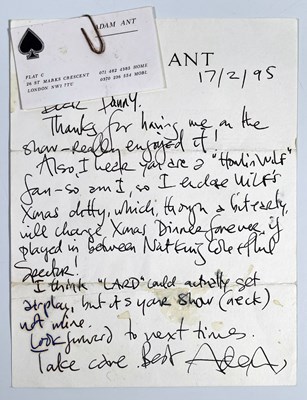 ADAM ANT
FLAT C
26 ST MARKS CRESCENT
LONDON NW1 7TU
HOME
MOBI
ANT
17/2/95
Dear Danny.
Thanks for having me on the
show - really enjoyed it!
Also, I hear you are a "Howlin Wolf"
fan - so am I, so I enclose Wolf's
Xmas ditty, which, though a bit early,
will change Xmas Dinner forever, if
played in between Nat King Cole & Phil
Spector!
I think "LARD" could actually get
airplay, but it's your show (neck)
not mine.
Look forward to next time.
Take care. Best Adam